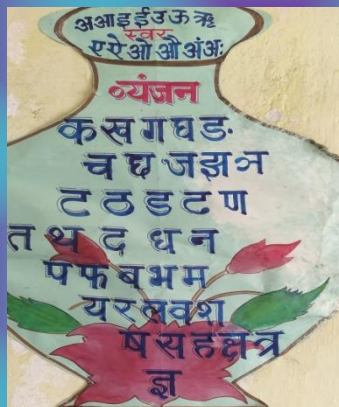 अआइईउऊऋ
स्वर
एऐओऔअंअः
व्यंजन
कखगघङ
चछजझञ
टठडटण
तथदधन
पफबभम
यरलवश
षसहक्षत्र
ज्ञ